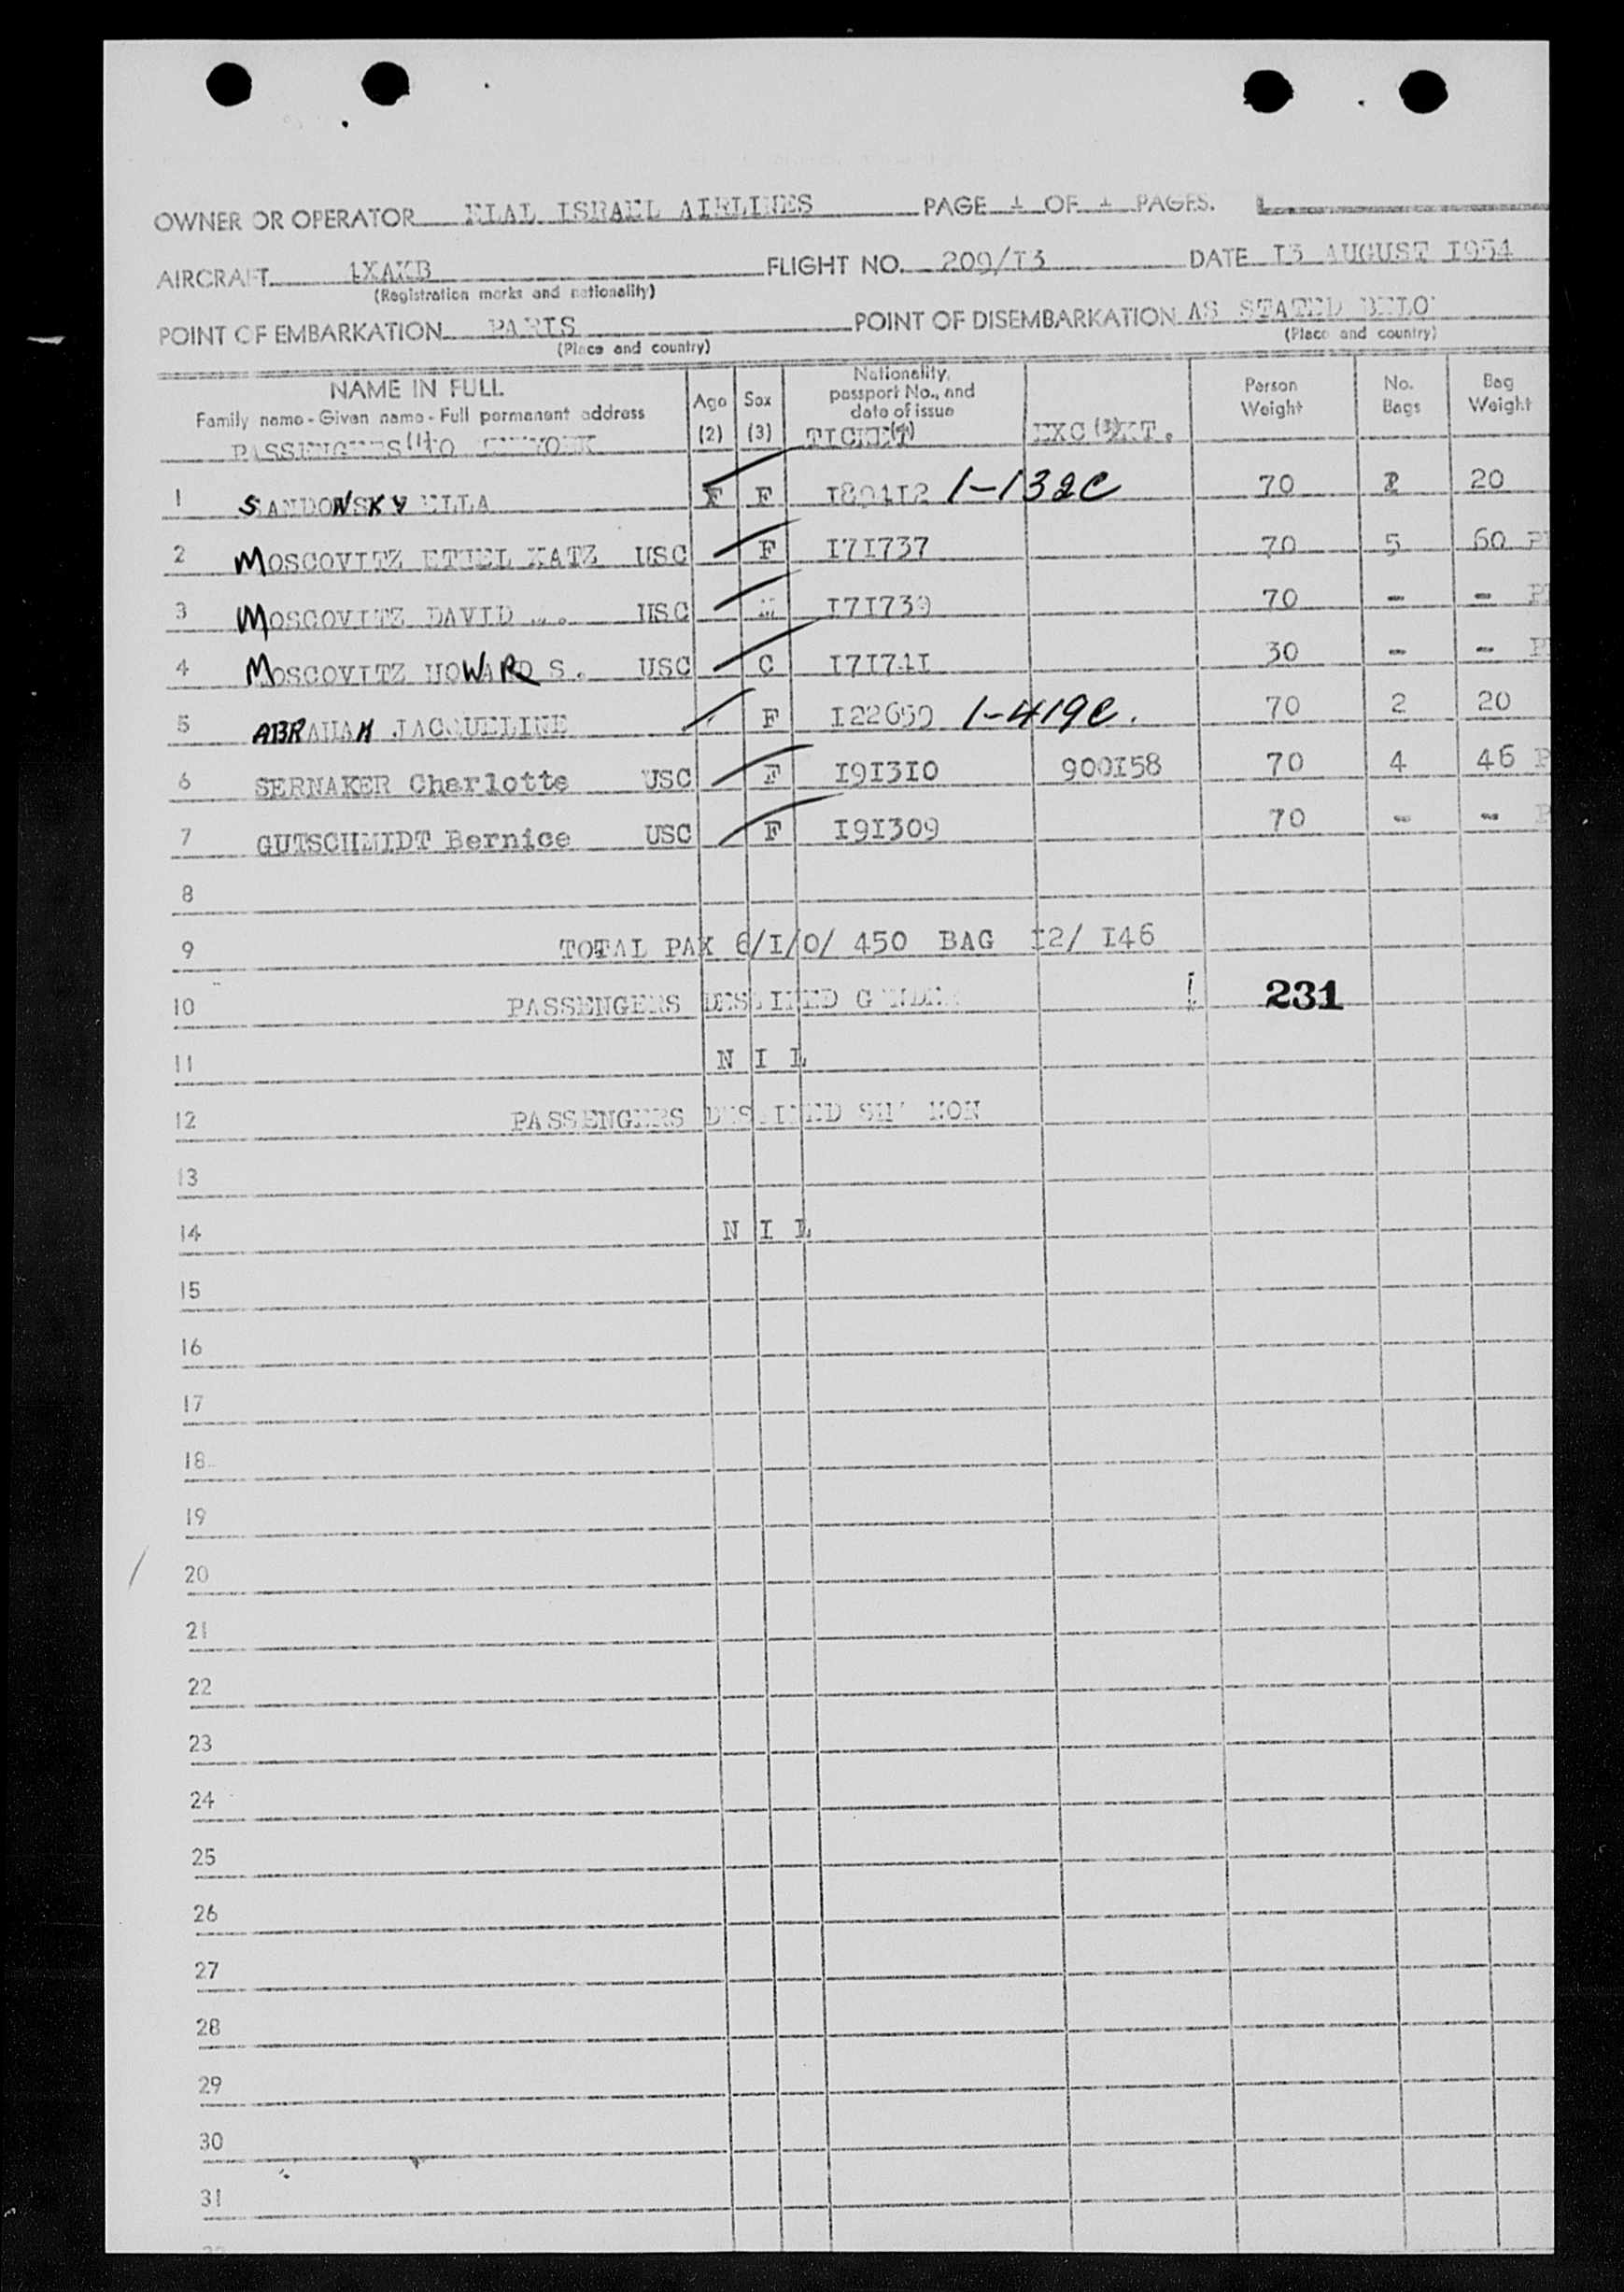 OWNER OR OPERATOR ELAL ISRAEL AIRLINES PAGE 1 OF 1 PAGES.
AIRCRAFT 4XAKB FLIGHT NO. 209/I3 DATE I3 AUGUST I954
(Registration marks and nationality)
POINT OF EMBARKATION PARIS POINT OF DISEMBARKATION AS STATED BELO
(Place and country) (Place and country)
NAME IN FULL Age Sex Nationality, passport No., and date of issue Person Weight No. Bags Bag Weight
Family name - Given name - Full permanent address
(1) (2) (3) (4) (5)
PASSENGERS TO TICKET EXC TKT.
1 SANDOWSKY ELLA F F I80412 1-132C 70 20
2 MOSCOVITZ ETHEL KATZ USC F I7I737 70 5 60 P
3 MOSCOVITZ DAVID USC M I7I739 70 - - P
4 MOSCOVITZ HOWARD S. USC C I7I74I 30 - - P
5 ABRAHAM JACQUELINE F I22659 1-419C. 70 2 20
6 SERNAKER Charlotte USC F I9I3I0 900I58 70 4 46 P
7 GUTSCHMIDT Bernice USC F I9I309 70 - - P
8
9 TOTAL PAX 6/I/0/ 450 BAG I2/ I46
10 PASSENGERS DESTINED 231
11 N I L
12 PASSENGERS DESTINED SHANNON
13
14 N I L
15
16
17
18
19
20
21
22
23
24
25
26
27
28
29
30
31